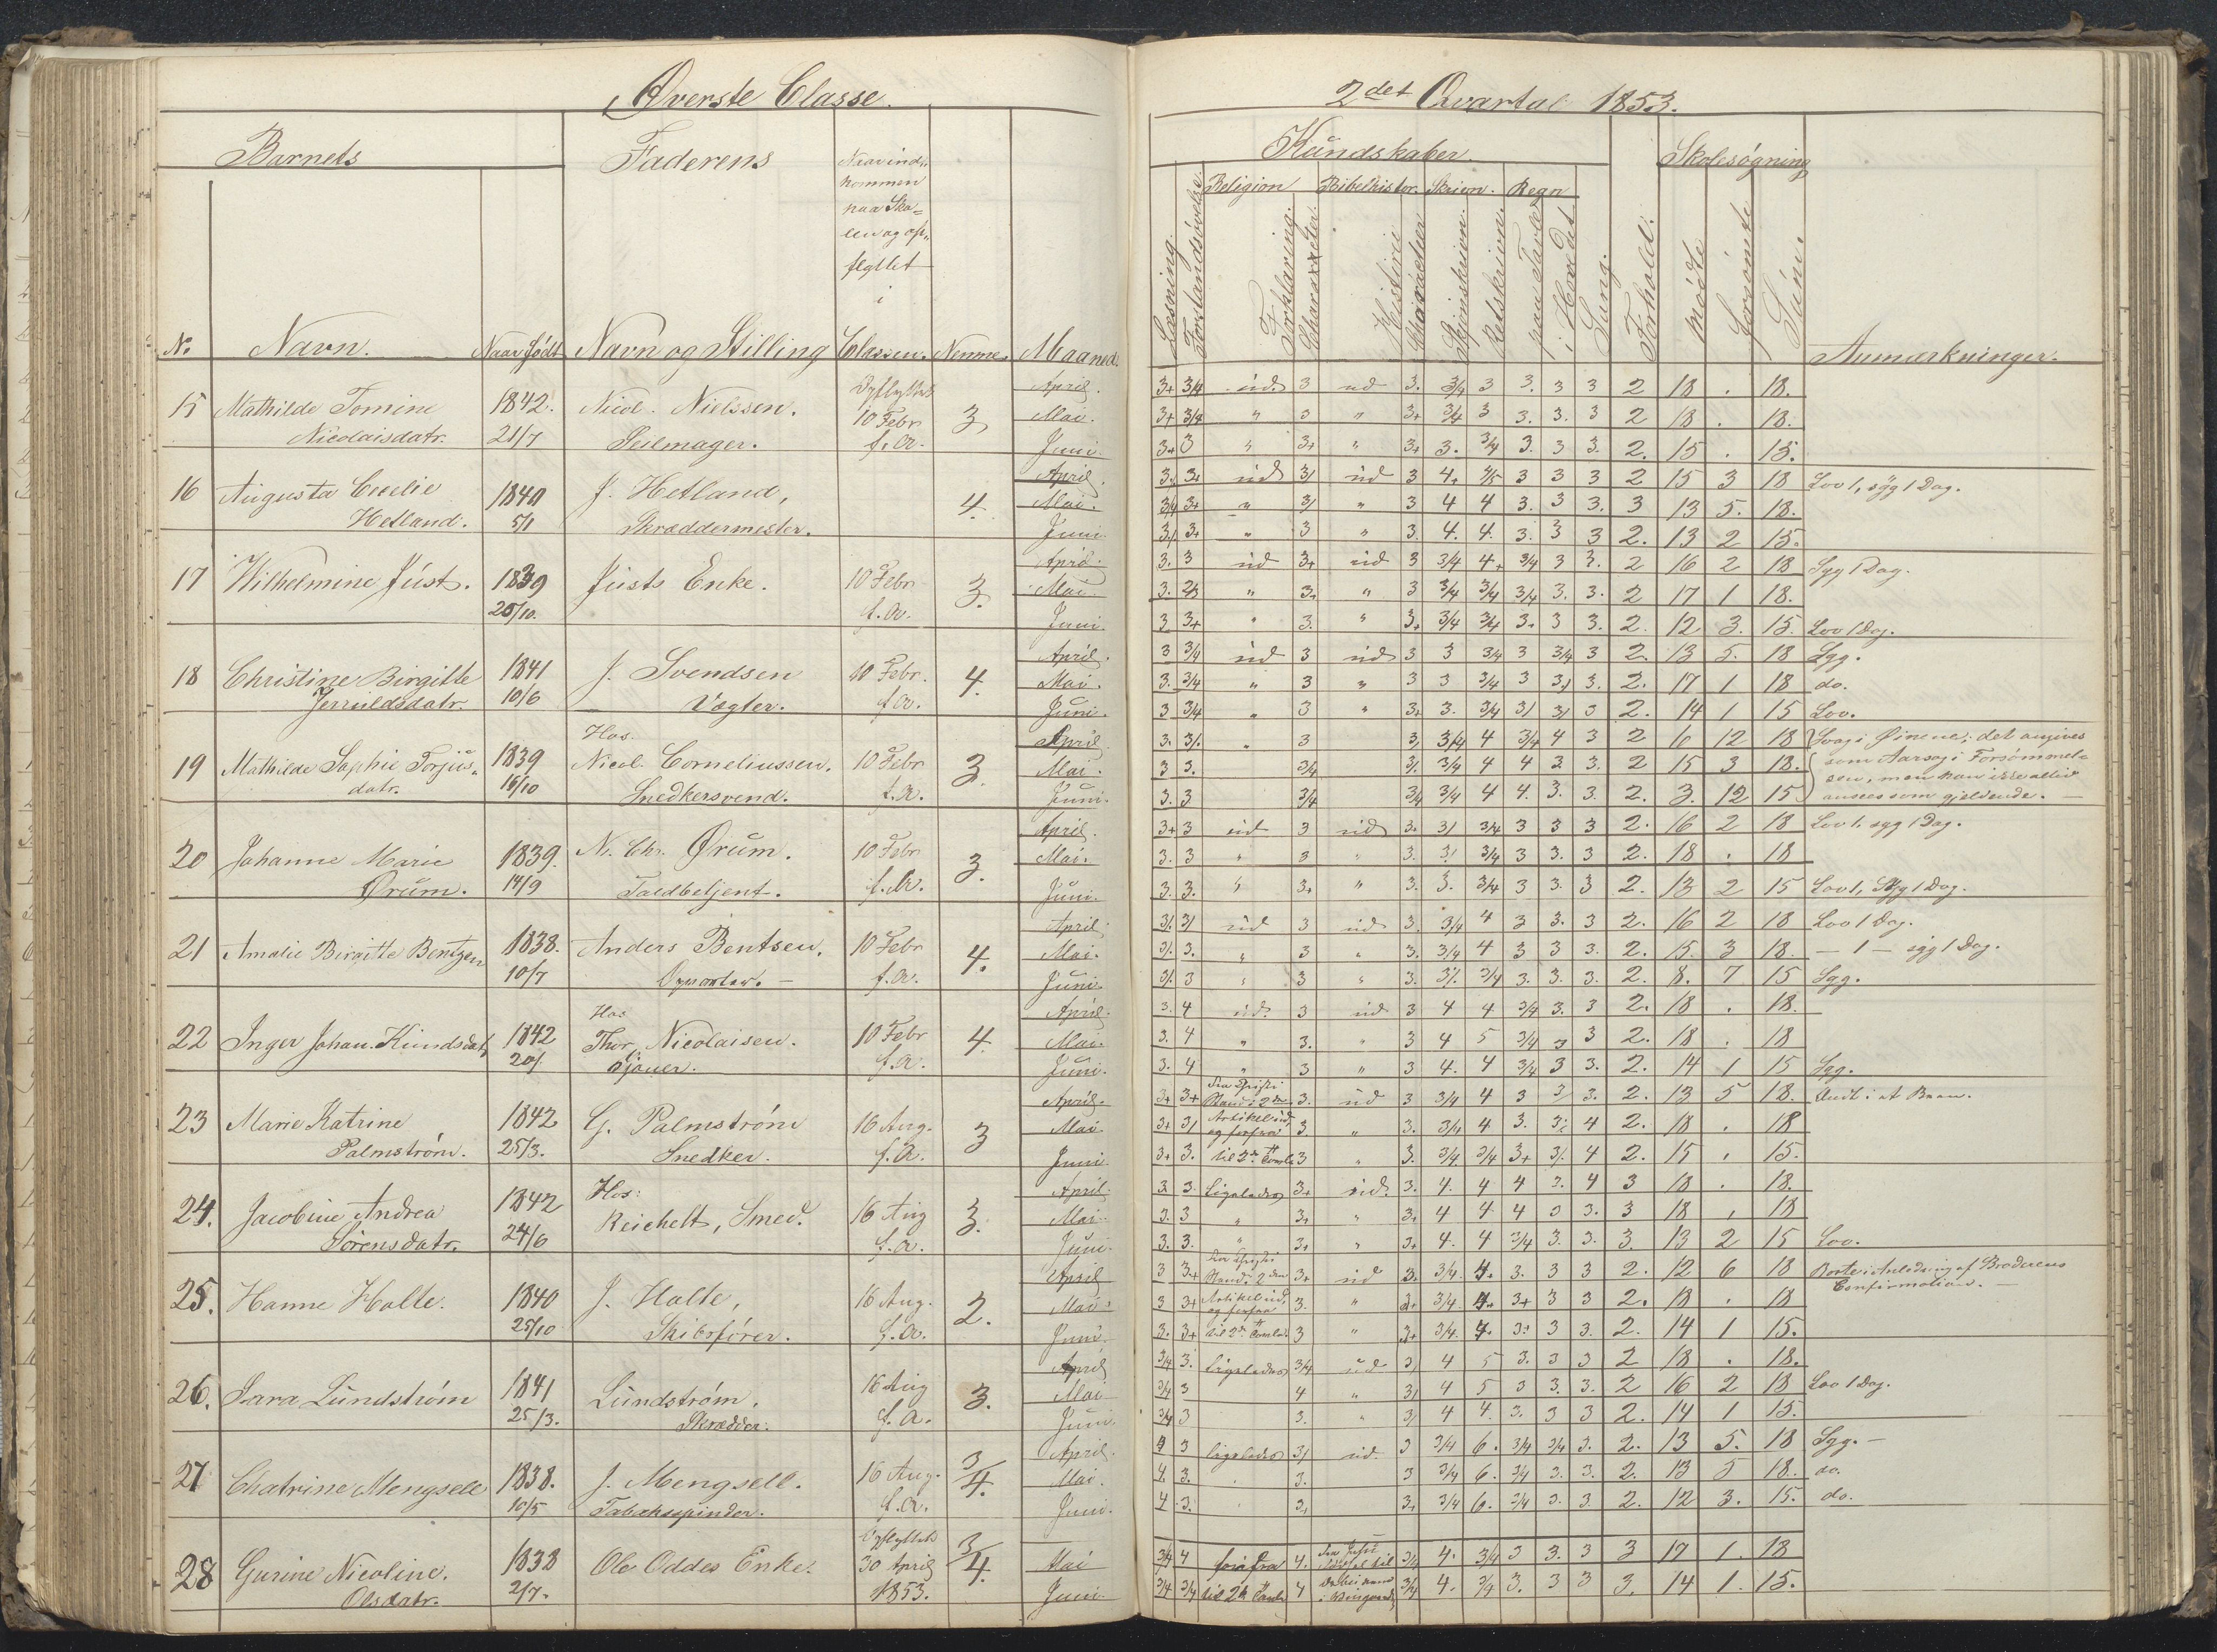 Øverste Classe.
Barnets
Faderens
Naar ind-
kommen
paa Sko-
len og op-
flyttet
i
No. Navn. Naar født Navn og Stilling Classen. Nemme. Maaned.
15 Mathilde Tomine 1842. Nicol. Nielssen. Opflyttet April.
Nicolaisdatr. 21/7 Seilmager. 10 Febr. f. A. 3 Mai.
Juni.
16 Augusta Cecilie 1840 J. Hetland, April.
Hetland. 5/1 Skræddermester. 4. Mai.
Juni.
17 Wilhelmine Just. 1839 Justs Enke. 10 Febr. April.
20/10. f. A. 3. Mai.
Juni.
18 Christine Birgitte 1841 J. Svendsen 10 Febr. April.
10/6 Vægter. f. A. 4. Mai.
Juni.
Hos.
19 Mathilde Sophie Torjus- 1839 Nicol. Corneliussen. 10 Febr. April
datr. 16/10 Snedkersvend. f. A. 3. Mai.
Juni.
20 Johanne Marie 1839. N. Chr. Ørum. 10 Febr. April.
Ørum. 14/9 Toldbetjent. f. A. 3. Mai.
Juni.
21 Amalie Birgitte Bentzen 1838. Anders Bentsen. 10 Febr. April.
10/7 f. A. 4. Mai.
Juni.
Hos
22 Inger Johan. Knudsdatr 1842 Thor. Nicolaisen. 10 Febr April.
20/ f. A. 4. Mai.
Juni.
23 Marie Katrine 1842 G. Palmstrøm 16 Aug. April.
Palmstrøm. 25/3. Snedker. f. A. 3 Mai.
Juni.
Hos:
24. Jacobine Andrea 1842 Reichelt, Smed. 16 Aug April.
Sørensdatr. 24/6 f. A. 3. Mai.
Juni.
25. Hanne Holte. 1840 J. Holte, 16 Aug. April
25/10 Skibsfører. f. A. 2. Mai.
Juni.
26. Sara Lundstrøm 1841 Lundstrøm, 16 Aug April
25/3. Skrædder. f. A. 3. Mai
Juni
27 Chatrine Mengsell 1838. J. Mengsell. 16 Aug. April.
10/5 Tabakspinder. f. A. 3/4. Mai.
Juni.
28 Gurine Nicoline. 1838 Ole Oddes Enke. Opflyttet
30 April 3/4. Mai
Olsdatr. 2/7. 1853. Juni.
2det Qvartal 1853.
Kundskaber.
Skolesøgning
Religion Bibelhistor. Skrivn. Regn
Læsning. Forstandsøvelse. Forklaring. Charakter. Historie Charakter Skjønskrivn. Retskrivn. paa Tavle i Hovdet. Sang. Forhold. mødte forsømte Sum. Anmærkninger.
3+ 3/4 ud. 3 ud 3. 3/4 3 3. 3 3 2 18 . 18.
3+ 3/4 " 3 " 3+ 3/4 3 3. 3. 3 2 18 . 18.
3+ 3 " 3+ " 3+ 3. 3/4 3. 3 3. 2. 15 . 15.
ud ud 3 3 3 3 2 15 3 18 Lov 1, syg 1 Dag.
" " 3 4 4 3. 3 3. 3 13 5. 18.
" 3 " 3. 4. 4. 3. 3 3 2. 13 2 15.
3. 3 ud 3+ ud 3 3/4 4+ 3/4 3 3. 2 16 2 18 Syg 1 Dag.
" 3+ " 3 3/4 3/4 3/4 3. 3. 2 17 1 18.
3 3+ " 3. " 3+ 3/4 3/4 3. 3 3. 2. 12 3. 15. Lov 1 Dag.
3 3/4 ud 3 ud 3 3 3/4 3 3/4 3 2. 13 5. 18 Syg.
3. 3/4 " 3 " 3 3 3/4 3 3. 2. 17 1 18 do.
3 3/4 " 3 " 3+ 3. 3/4 3 2. 14 1 15 Lov.
3. " 3 4 3/4 4 3 2 6 12 18 Svag i Øinene; det angives
3 3. 3/4 3/4 4 4 3 3. 2 15 3 18. som Aarsag i Forsømmel-
sen, men kan ikke altid
3. 3 3/4 3/4 3/4 4 4. 3. 3. 2. 3. 12 15 ansees som gjeldende.
3+ 3 ud 3 ud 3. 3/4 3 3 3 2. 16 2 18 Lov 1. syg 1 Dag.
3. 3 " 3 " 3. 3/4 3 3. 3 2. 18 . 18
3. 3. " 3+ " 3. 3. 3/4 3 3. 3 2. 13 2 15 Lov 1, Syg 1 Dag.
ud 3 ud 3. 3/4 4 3 3. 3 2. 16 2 18 Lov 1 Dag.
3. " 3 " 3. 3/4 4 3 3 3. 2. 15. 3 18. — 1 — syg 1 Dag.
3 " 3 " 3. 3/4 3. 3. 3. 2. 8. 7 15 Syg.
3. 4 ud. 3 ud 3 4 4 3/4 3. 3 2. 18 . 18.
3. 4 " 3. " 3 4 5 3/4 3 3 2. 18 . 18
3. 4 " 3 " 3 4. 4 3/4 3 3. 2. 14 1 15 Syg.
3+ 3+ Fra Christi Stand i 2den 3. ud 3 3/4 4 3 3. 2. 13 5 18.
3+ Artikel ud, og forfra 3. " 3. 3/4 4 3. 4 2. 18 . 18
3+ 3. 3 " 3. 3/4 3/4 3+ 4 2. 15 . 15.
3 3. Ligeledes 3+ ud. 3. 4. 4 4 3. 4 3 18 . 18.
3. 3 " 3+ " 3+ 4 4. 4 3 3. 3 18 . 18
3. 3. " 3+ " 3+ 4. 4 3/4 3. 3. 3. 13 2 15 Lov.
3 3+ Fra Christi Stand i 2den 3+ ud 3. 3/4. 4. 3. 3 3 2. 12 6 18 Borte i Anledning af Broderens
Confirmation.
3 3+ Artikel ud, og forfra 3. " 3+ 3/4. 4+ 3+ 3 3 2. 18 . 18
3. 3+ 3 " 3+ 3/4. 4. 3+ 3 3. 2. 14 1 15.
3/4 3. Ligeledes 3/4 ud 4 5 3. 3 3 2 18 . 18.
3/4 3 4 " 4 5 3 3. 3. 2 16 2 18 Lov 1 Dag.
3/4 3 3. " 4 4. 3. 3 3 2. 14 1 15.
4 3 ligeledes ud. 3 3/4 6. 3/4 3/4 3. 2. 13 5. 18 Syg.
4. 3. 3. 3 3/4 6. 3/4 3. 3. 2. 13 5 18. do.
4. 3. 3+ 3+ 3/4 6. 3/4 3. 3. 2. 12 3. 15. do.
3/4 4 forfra 4. Fra 3/4 4. 3/4 3 3. 3 3 17 1. 18
3/4 3/4 til 2den 4 3/4 4. 3/4 3. 3 3 3. 14 1. 15.